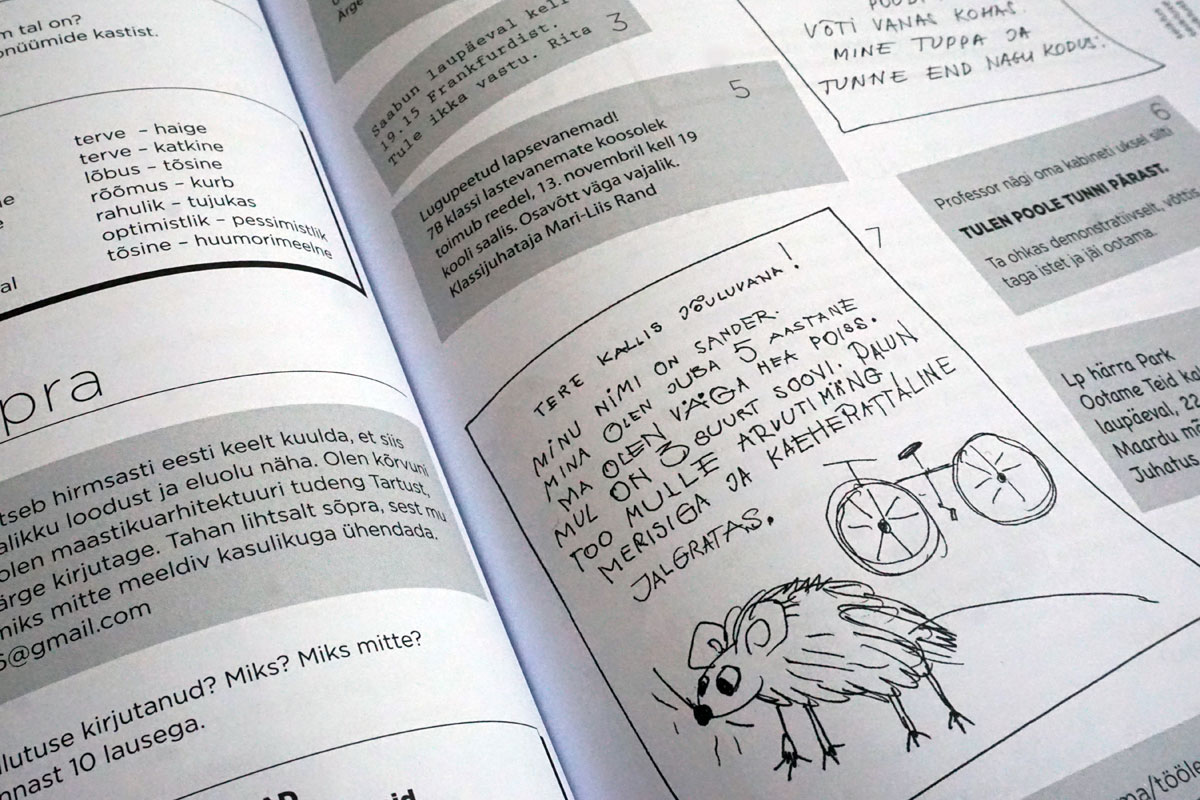 m tal on?
onüümide kastist.
terve – haige
terve – katkine
lõbus – tõsine
rõõmus – kurb
rahulik – tujukas
optimistlik – pessimistlik
tõsine – huumorimeelne
al
pra
tseb hirmsasti eesti keelt kuulda, et siis
alikku loodust ja eluolu näha. Olen kõrvuni
olen maastikuarhitektuuri tudeng Tartust,
ärge kirjutage. Tahan lihtsalt sõpra, sest mu
miks mitte meeldiv kasulikuga ühendada.
6@gmail.com
llutuse kirjutanud? Miks? Miks mitte?
nnast 10 lausega.
Arge
3
Saabun laupäeval kell
19.15 Frankfurdist.
Tule ikka vastu. Rita
5
Lugupeetud lapsevanemad!
7B klassi lastevanemate koosolek
toimub reedel, 13. novembril kell 19
kooli saalis. Osavõtt väga vajalik.
Klassijuhataja Mari-Liis Rand
VÕTI VANAS KOHAS.
MINE TUPPA JA
TUNNE END NAGU KODUS.
6
Professor nägi oma kabineti uksel silti
TULEN POOLE TUNNI PÄRAST.
Ta ohkas demonstratiivselt, võttis
taga istet ja jäi ootama.
7
TERE KALLIS JÕULUVANA!
MINU NIMI ON SANDER.
MINA OLEN JUBA 5 AASTANE
MA OLEN VÄGA HEA POISS.
MUL ON 3 SUURT SOOVI. PALUN
TOO MULLE ARVUTIMÄNG
MERISIGA JA KAEHERATTALINE
JALGRATAS.
Lp härra Park
Ootame Teid
laupäeval, 22
Maardu
Juhatus
ma/tööle